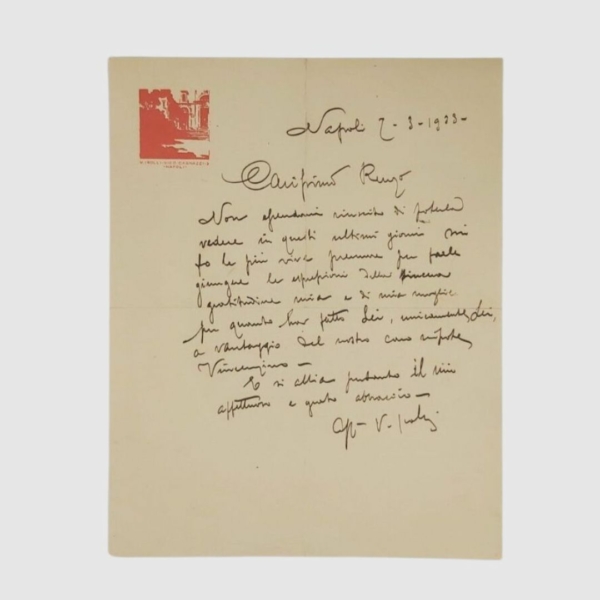 NAPOLI
Napoli 7-3-1933-
Carissimo Renzo
Non essendomi riuscito di poterLa
vedere in questi ultimi giorni mi
fo le più vive premure per farLe
giungere le espressioni della sincera
gratitudine mia e di mia moglie
per quanto ha fatto Lei, unicamente Lei,
a vantaggio del nostro caro nipote
Vincenzino -
E si abbia pertanto il mio
affettuoso e grato abbraccio -
aff- V-